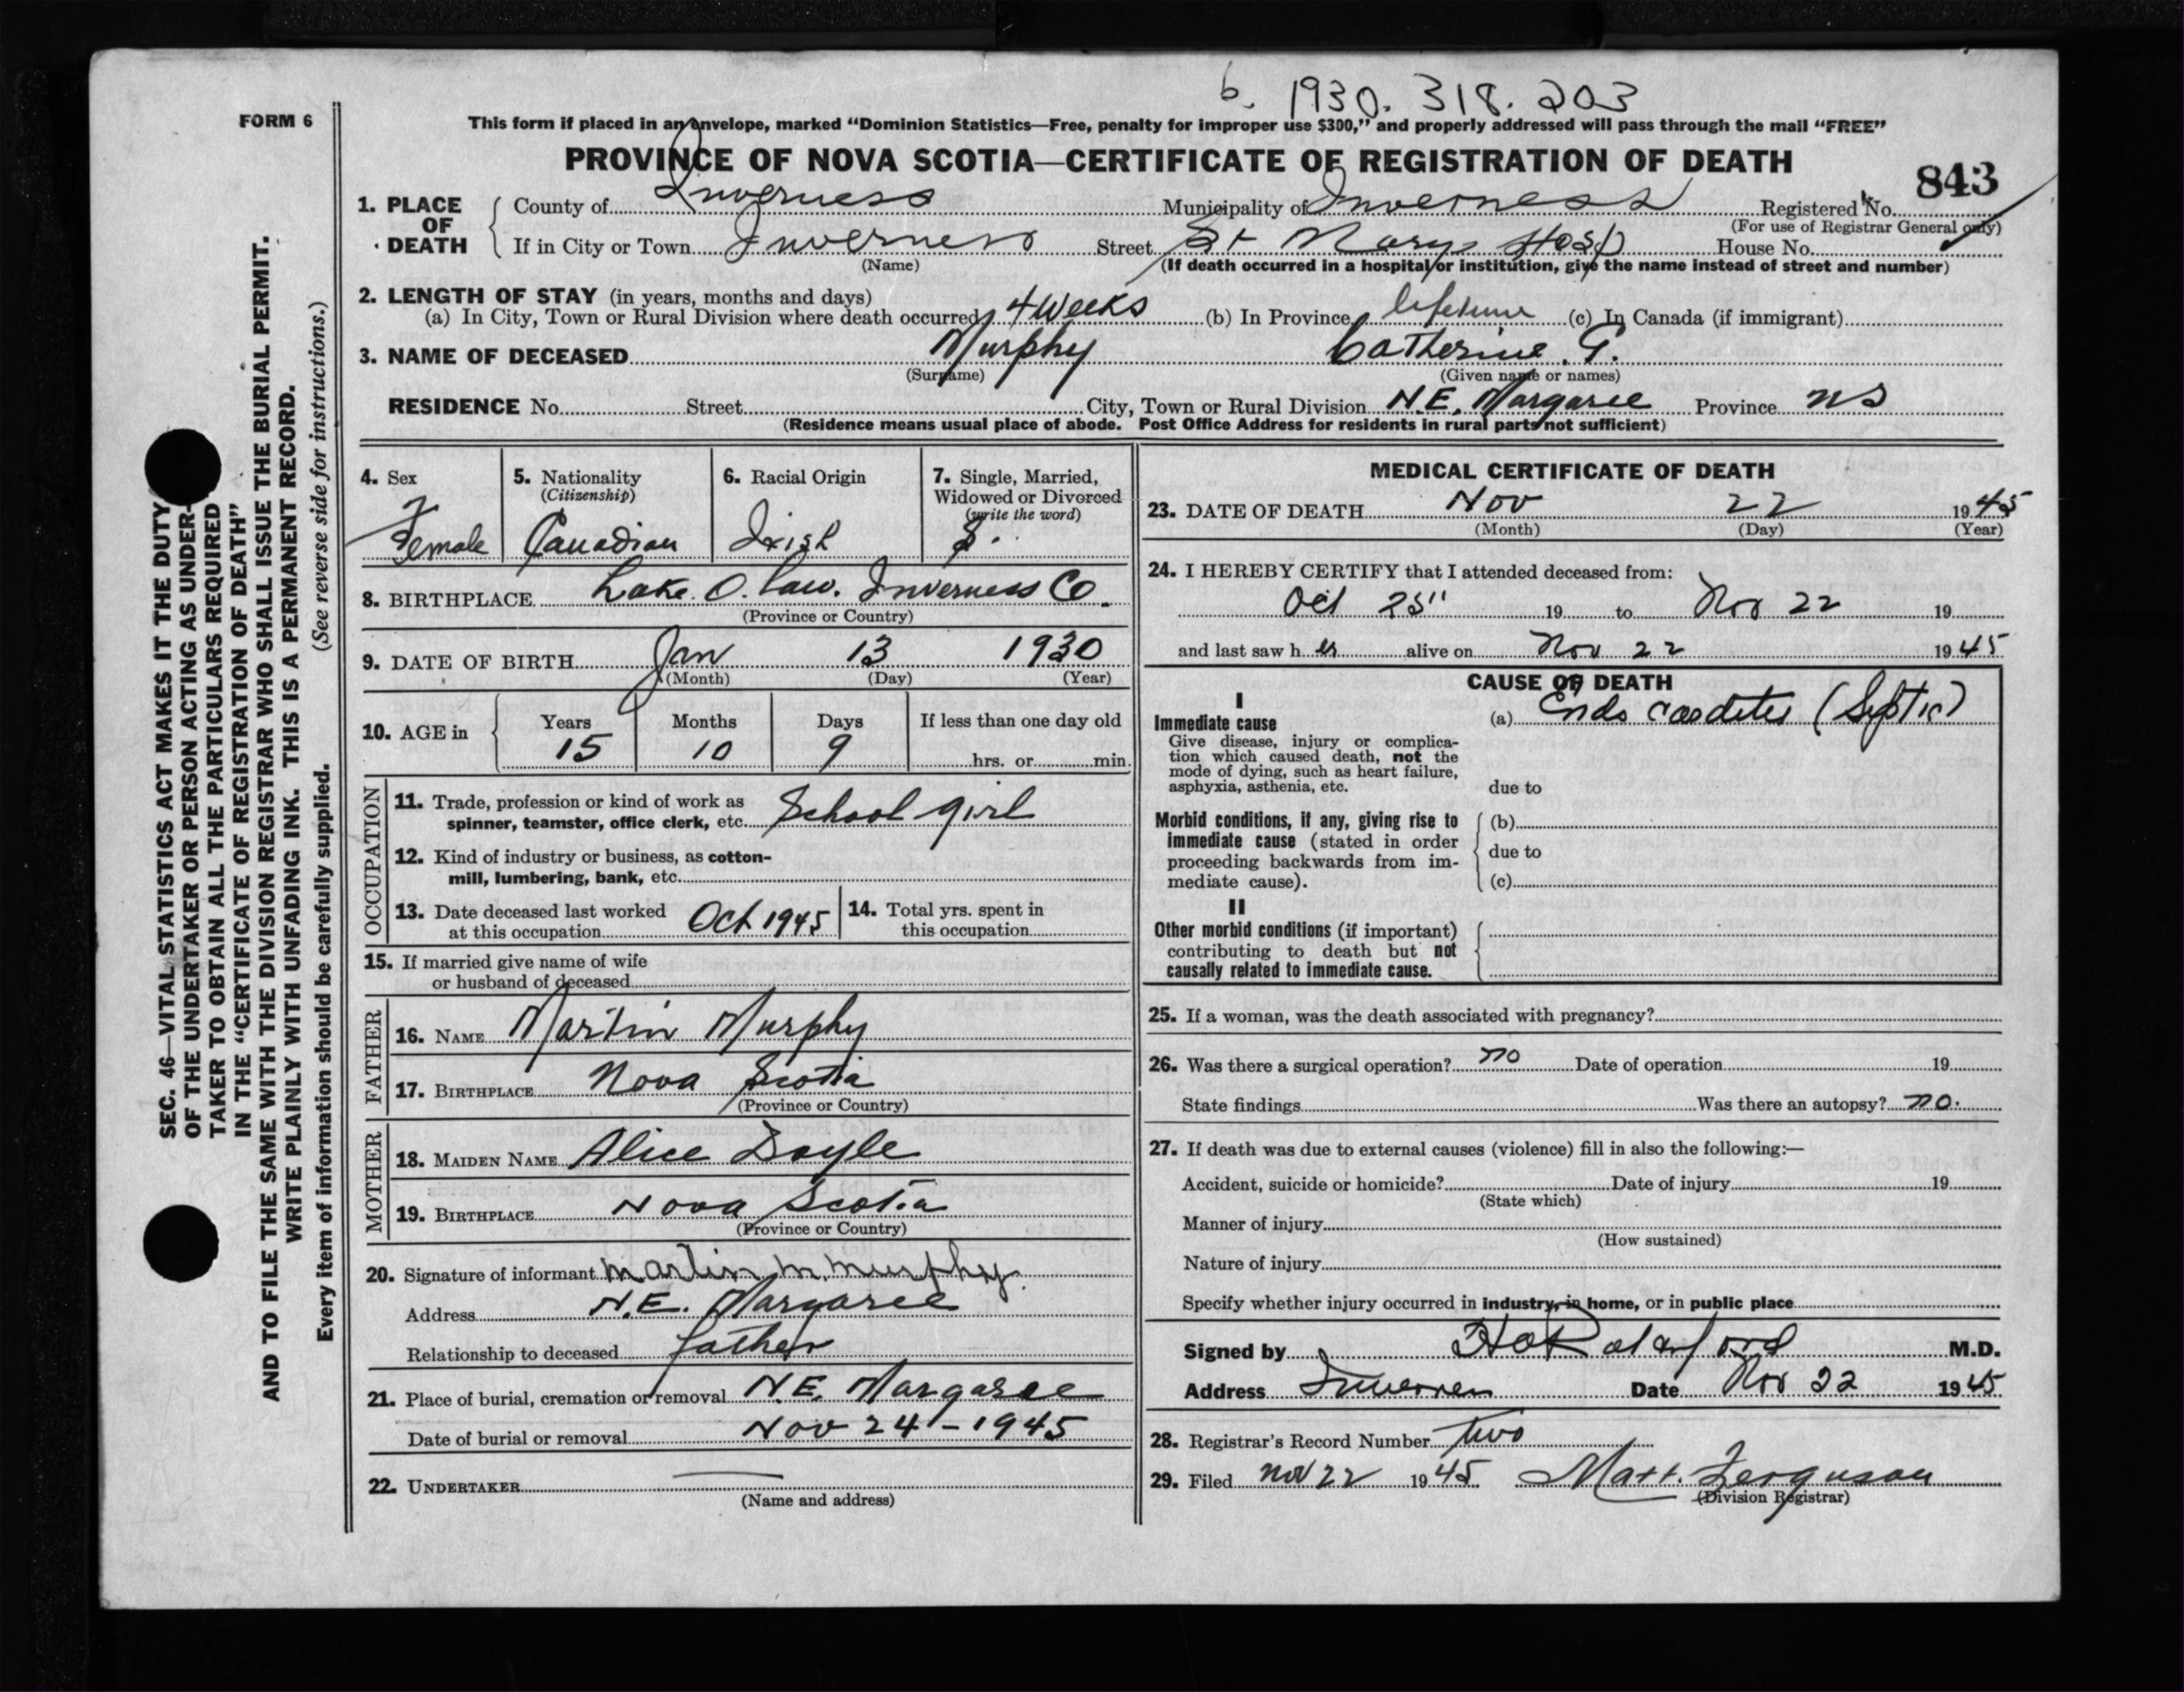 b. 1930. 318. 203
FORM 6
This form if placed in an envelope, marked “Dominion Statistics—Free, penalty for improper use $300,” and properly addressed will pass through the mail “FREE”
PROVINCE OF NOVA SCOTIA—CERTIFICATE OF REGISTRATION OF DEATH
843
1. PLACE OF DEATH
County of Inverness Municipality of Inverness Registered No.
(For use of Registrar General only)
If in City or Town Inverness Street St Marys Hosp House No.
(Name) (If death occurred in a hospital or institution, give the name instead of street and number)
2. LENGTH OF STAY (in years, months and days)
(a) In City, Town or Rural Division where death occurred 4 Weeks (b) In Province lifetime (c) In Canada (if immigrant)
3. NAME OF DECEASED Murphy Catherine. G.
(Surname) (Given name or names)
RESIDENCE No. Street City, Town or Rural Division N.E. Margaree Province NS
(Residence means usual place of abode. Post Office Address for residents in rural parts not sufficient)
4. Sex
Female
5. Nationality
(Citizenship)
Canadian
6. Racial Origin
Irish
7. Single, Married,
Widowed or Divorced
(write the word)
S.
8. BIRTHPLACE Lake. O. Law. Inverness Co.
(Province or Country)
9. DATE OF BIRTH Jan 13 1930
(Month) (Day) (Year)
10. AGE in
Years Months Days If less than one day old
15 10 9 hrs. or min.
OCCUPATION
11. Trade, profession or kind of work as
spinner, teamster, office clerk, etc. School girl
12. Kind of industry or business, as cotton-
mill, lumbering, bank, etc.
13. Date deceased last worked
at this occupation Oct 1945
14. Total yrs. spent in
this occupation
15. If married give name of wife
or husband of deceased
FATHER
16. NAME Martin Murphy
17. BIRTHPLACE Nova Scotia
(Province or Country)
MOTHER
18. MAIDEN NAME Alice Doyle
19. BIRTHPLACE Nova Scotia
(Province or Country)
20. Signature of informant Martin M. Murphy.
Address N.E. Margaree
Relationship to deceased father
21. Place of burial, cremation or removal N.E. Margaree
Date of burial or removal Nov 24 - 1945
22. UNDERTAKER
(Name and address)
MEDICAL CERTIFICATE OF DEATH
23. DATE OF DEATH Nov 22 1945
(Month) (Day) (Year)
24. I HEREBY CERTIFY that I attended deceased from:
Oct 25" 19 to Nov 22 19
and last saw h er alive on Nov 22 1945
CAUSE OF DEATH
I
Immediate cause
(a) Endo cardites (Septic)
Give disease, injury or complica-
tion which caused death, not the
mode of dying, such as heart failure,
asphyxia, asthenia, etc.
due to
Morbid conditions, if any, giving rise to
immediate cause (stated in order
proceeding backwards from im-
mediate cause).
(b)
due to
(c)
II
Other morbid conditions (if important)
contributing to death but not
causally related to immediate cause.
25. If a woman, was the death associated with pregnancy?
26. Was there a surgical operation? no Date of operation 19
State findings Was there an autopsy? no.
27. If death was due to external causes (violence) fill in also the following:—
Accident, suicide or homicide? Date of injury 19
(State which)
Manner of injury
(How sustained)
Nature of injury
Specify whether injury occurred in industry, in home, or in public place
Signed by M.D.
Address Inverness Date Nov 22 1945
28. Registrar's Record Number Two
29. Filed Nov 22 1945 Matt. Ferguson
(Division Registrar)
SEC. 46—VITAL STATISTICS ACT MAKES IT THE DUTY
OF THE UNDERTAKER OR PERSON ACTING AS UNDER-
TAKER TO OBTAIN ALL THE PARTICULARS REQUIRED
IN THE “CERTIFICATE OF REGISTRATION OF DEATH”
AND TO FILE THE SAME WITH THE DIVISION REGISTRAR WHO SHALL ISSUE THE BURIAL PERMIT.
WRITE PLAINLY WITH UNFADING INK. THIS IS A PERMANENT RECORD.
Every item of information should be carefully supplied. (See reverse side for instructions.)